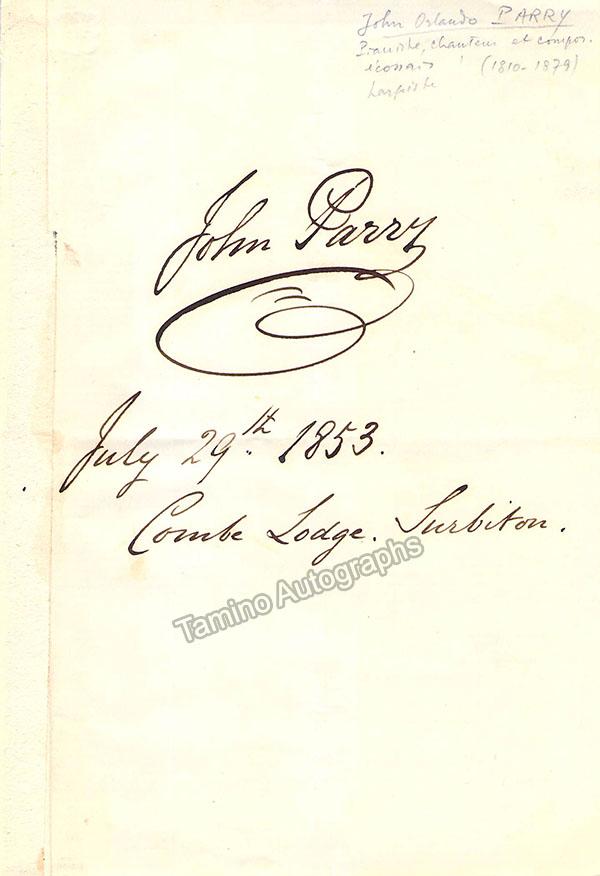 John Orlando PARRY
Pianiste, chanteur et compos.
écossais (1810-1879)
harpiste
John Parry
July 29th. 1853.
Combe Lodge. Surbiton.
Tamino Autographs